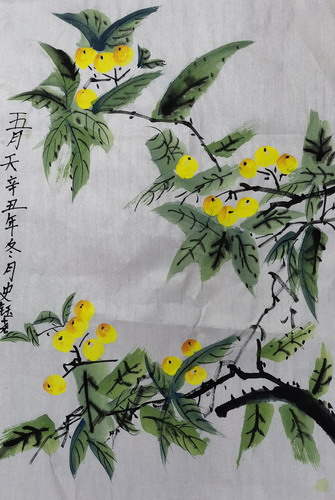 五月天辛丑年冬月史钰